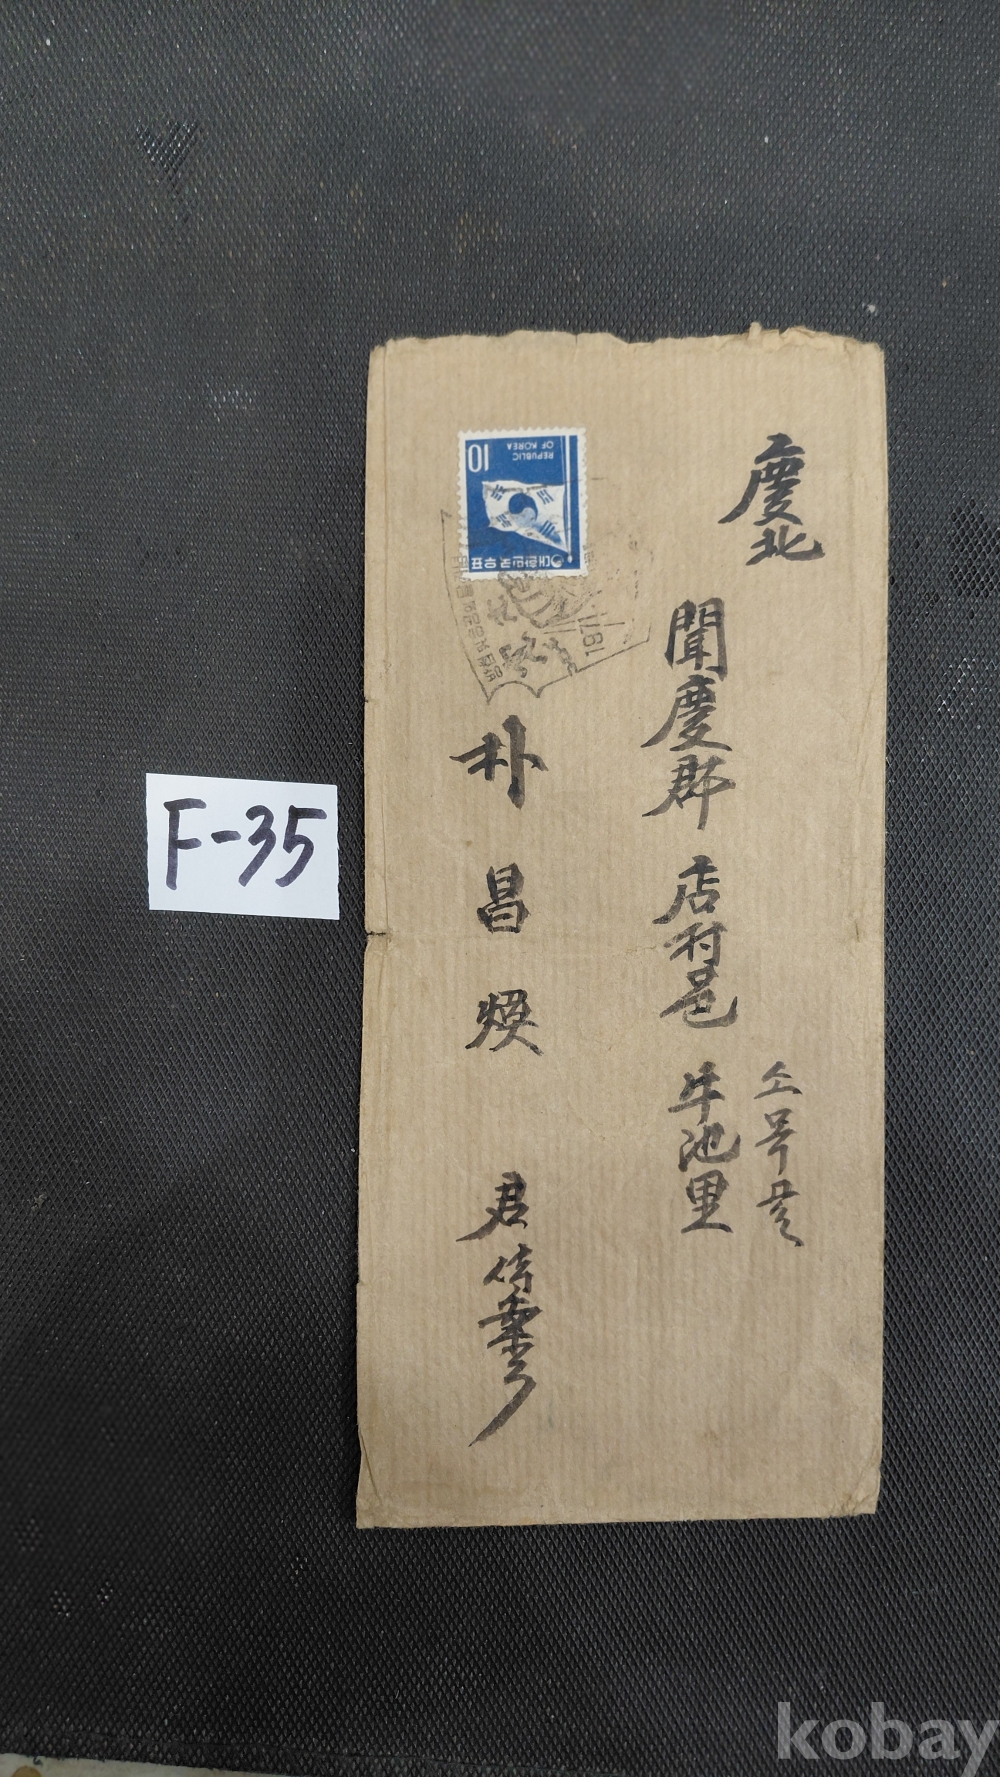 慶北
聞慶郡 店村邑 牛池里
소목골
朴昌煥 君
10
REPUBLIC
OF KOREA
대한민국우표
F-35
kobay